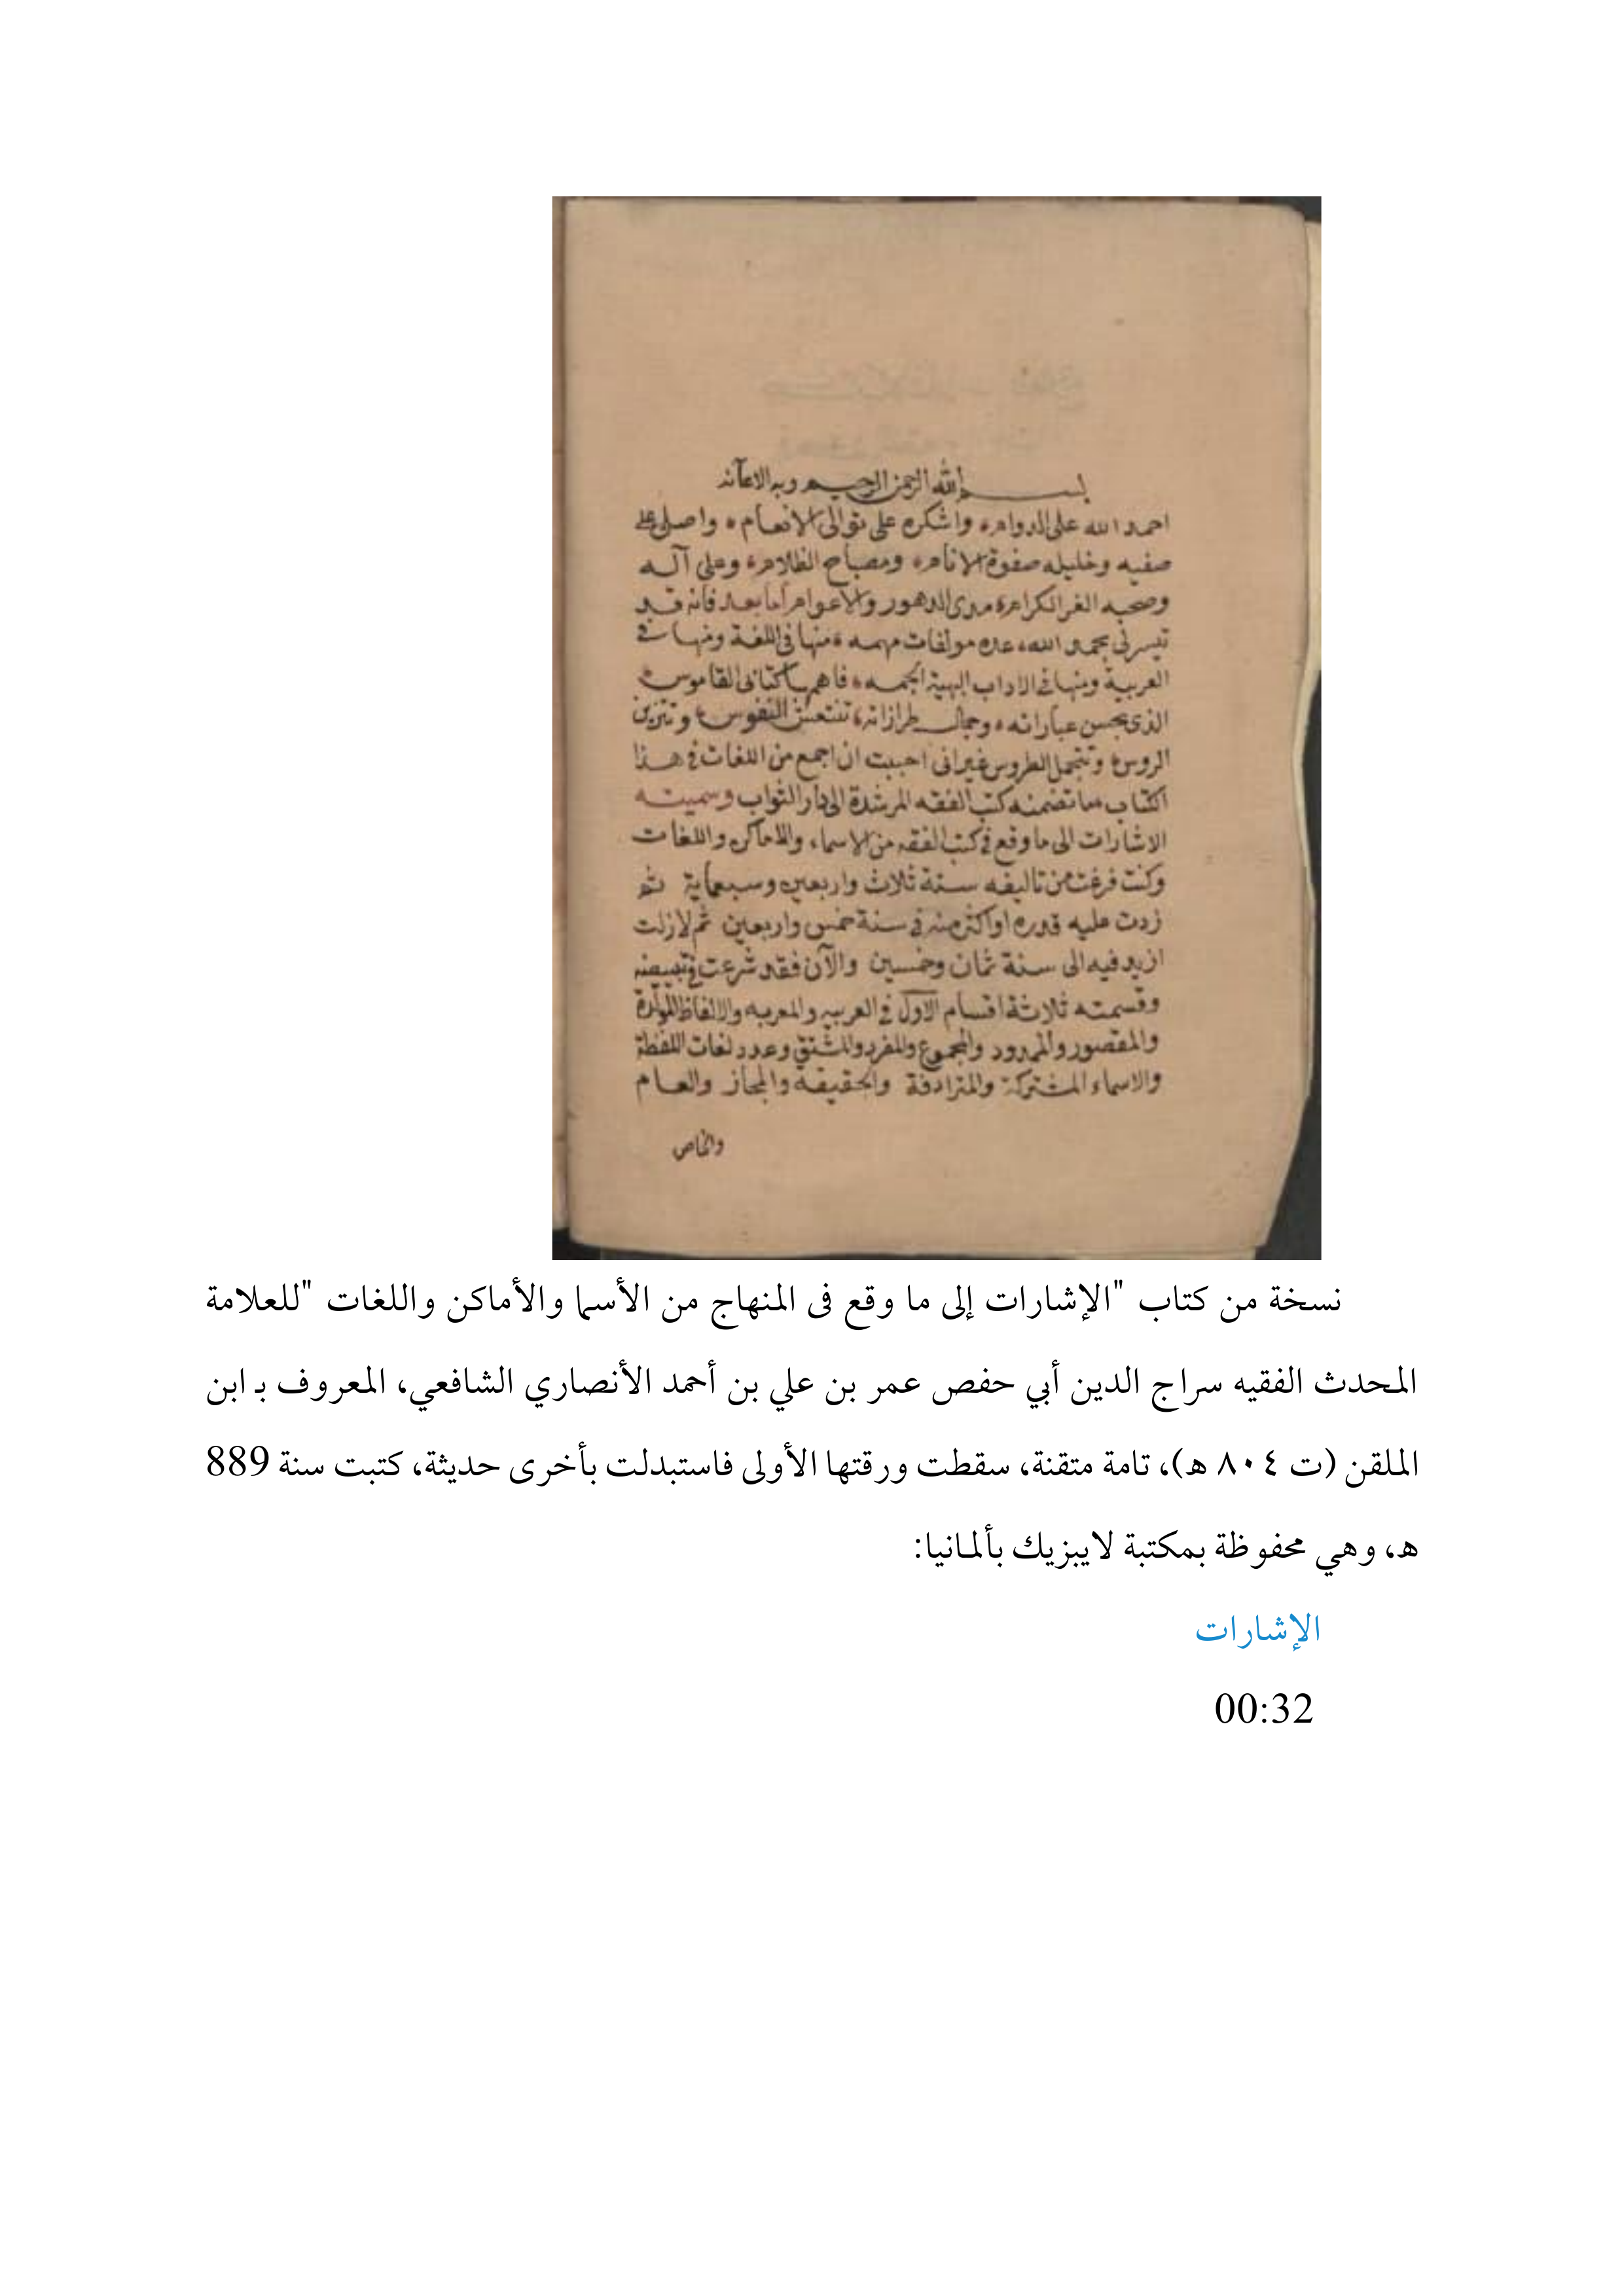 بسم الله الرحمن الرحيم وبه الاعانه
احمد الله على الدوام واشكره على توالى الانعام واصلى على
صفيه وخليله صفوة الانام ومصباح الظلام وعلى آله
وصحبه الغر الكرام مدى الدهور والاعوام اما بعد فانه قد
تيسر لى بحمد الله عدة مولفات مهمه منها فى اللغة ومنها فى
العربية ومنها فى الاداب البهية الجمه فاهمها كتابى القاموس
الذى بحسن عباراته وجمال طرازاته تنتعش النفوس وتتزين
الروس وتتجمل الطروس غير انى احببت ان اجمع من اللغات فى هذا
الكتاب مما تضمنه كتب الفقه المرشدة الى دار الثواب وسميته
الاشارات الى ما وقع فى كتب الفقه من الاسماء والاماكن واللغات
وكنت فرغت من تاليفه سنة ثلاث واربعين وسبعماية ثم
زدت عليه قدره او اكثر منه فى سنة خمس واربعين ثم لازلت
ازيد فيه الى سنة ثمان وخمسين والآن فقد شرعت فى تبييضه
وقسمته ثلاثة اقسام الاول فى العربيه والمعربه والالفاظ المولدة
والمقصور والممدود والمجموع والمفرد والمشتق وعدد لغات اللفظة
والاسماء المشتركة والمترادفة والحقيقه والمجاز والعام
والخاص
نسخة من كتاب "الإشارات إلى ما وقع فى المنهاج من الأسما والأماكن واللغات "للعلامة
المحدث الفقيه سراج الدين أبي حفص عمر بن علي بن أحمد الأنصاري الشافعي، المعروف بـ ابن
الملقن (ت ٨٠٤ هـ)، تامة متقنة، سقطت ورقتها الأولى فاستبدلت بأخرى حديثة، كتبت سنة 889
هـ، وهي محفوظة بمكتبة لايبزيك بألمانيا:
الإشارات
00:32